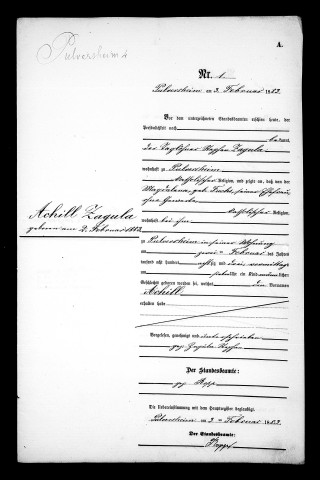 Pulversheim
A.
Nr. 1
Pulversheim am 3. Februar 1883
Vor dem unterzeichneten Standesbeamten erschien heute, der
Persönlichkeit nach
kannt,
der Zagula
wohnhaft zu Pulversheim
katholischer Religion, und zeigte an, daß von der
Magdalena, geb. Fuchs, seiner Ehefrau,
katholischer Religion,
wohnhaft bei ihm
Achill Zagula
geboren am 2. Februar 1883
zu Pulversheim in seiner Wohnung
am zwei ten Februar des Jahres
tausend acht hundert achtzig und drei, vormittags
um Uhr ein Kind männlichen
Geschlechts geboren worden sei, welches den Vornamen
Achill
erhalten habe
Vorgelesen, genehmigt und unterschrieben
gez. Zagula
Der Standesbeamte:
gez.
Die Uebereinstimmung mit dem Hauptregister beglaubigt
Pulversheim am 3 ten Februar 1883
Der Standesbeamte: